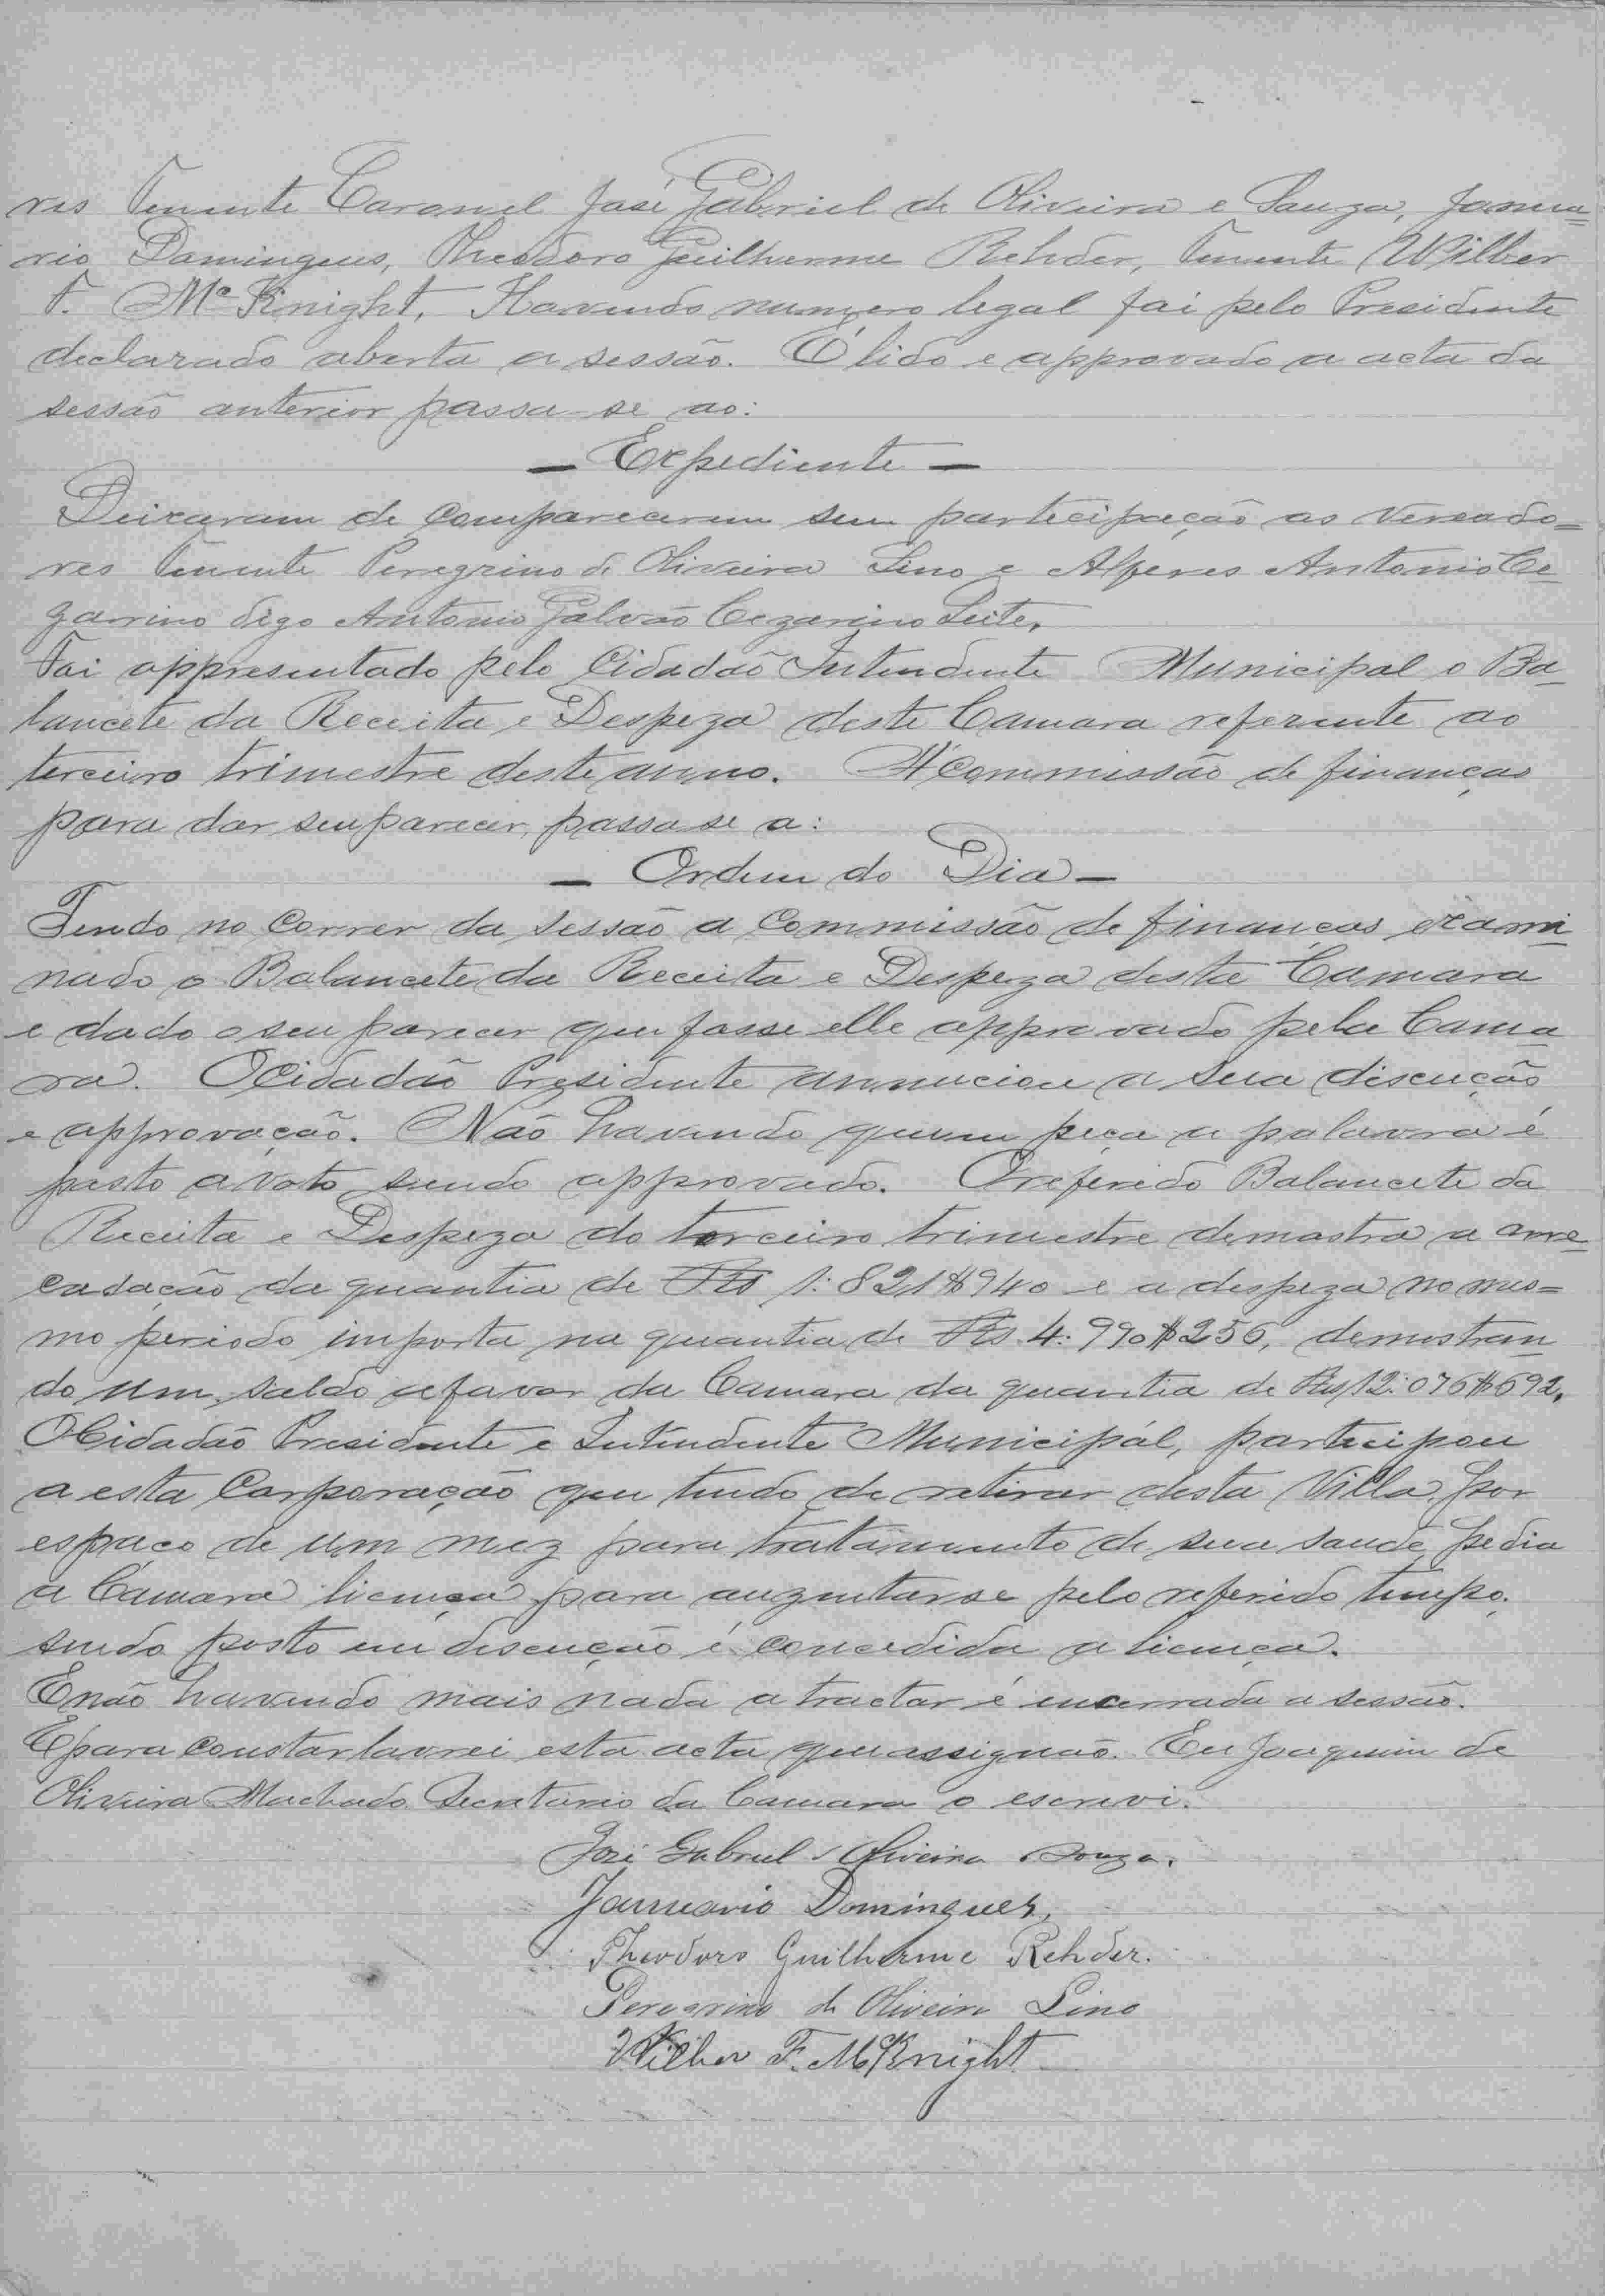 res Tenente Coronel José Gabriel de Oliveira e Souza, Janua=
rio Domingues, Theodoro Guilherme Rehder, Tenente Wilber
F. Mc Knight. Havendo numero legal foi pelo Presidente
declarado aberta a sessão. É lido e approvado a acta da
sessão anterior passa-se ao:
— Expediente —
Deixaram de comparecerem sem participação os vereado=
res Tenente Peregrino de Oliveira Lino e Alferes Antonio Ce
zarino digo Antonio Galvão Cezarino Leite.
Foi appresentado pelo Cidadão Intendente Municipal o Ba
lancete da Receita e Despeza deste Camara referente ao
terceiro trimestre deste anno. A' Commissão de finanças
para dar seu parecer, passa se a:
— Ordem do Dia —
Tendo no correr da sessão a Commissão de finanças exami
nado o Balancete da Receita e Despeza desta Camara
e dado o seu parecer que fosse elle approvado pela Cama
ra. O Cidadão Presidente annunciou a sua discução
e approvação. Não havendo quem peça a palavra é
posto a voto sendo approvado. O referido Balancete da
Receita e Despeza do terceiro trimestre demostra a arre
cadação da quantia de Rs 1:821$940 e a despeza no mes=
mo periodo importa na quantia de Rs 4:990$256, demostran
do um saldo a favor da Camara da quantia de Rs 12:076$692.
O Cidadão Presidente e Intendente Municipal, participou
a esta Corporação que tendo de retirar desta Villa por
espaço de um mez para tratamento de sua saude, pedia
a Camara licença para auzentarse pelo referido tempo.
sendo posto em discução é concedida a licença.
E não havendo mais nada a tractar é encerrada a sessão.
E para constar lavrei esta acta que assignão. Eu Joaquim de
Oliveira Machado Secretario da Camara o escrevi.
José Gabriel d'Oliveira e Souza.
Januario Domingues,
Theodoro Guilherme Rehder.
Peregrino de Oliveira Lino
Wilber F. McKnight